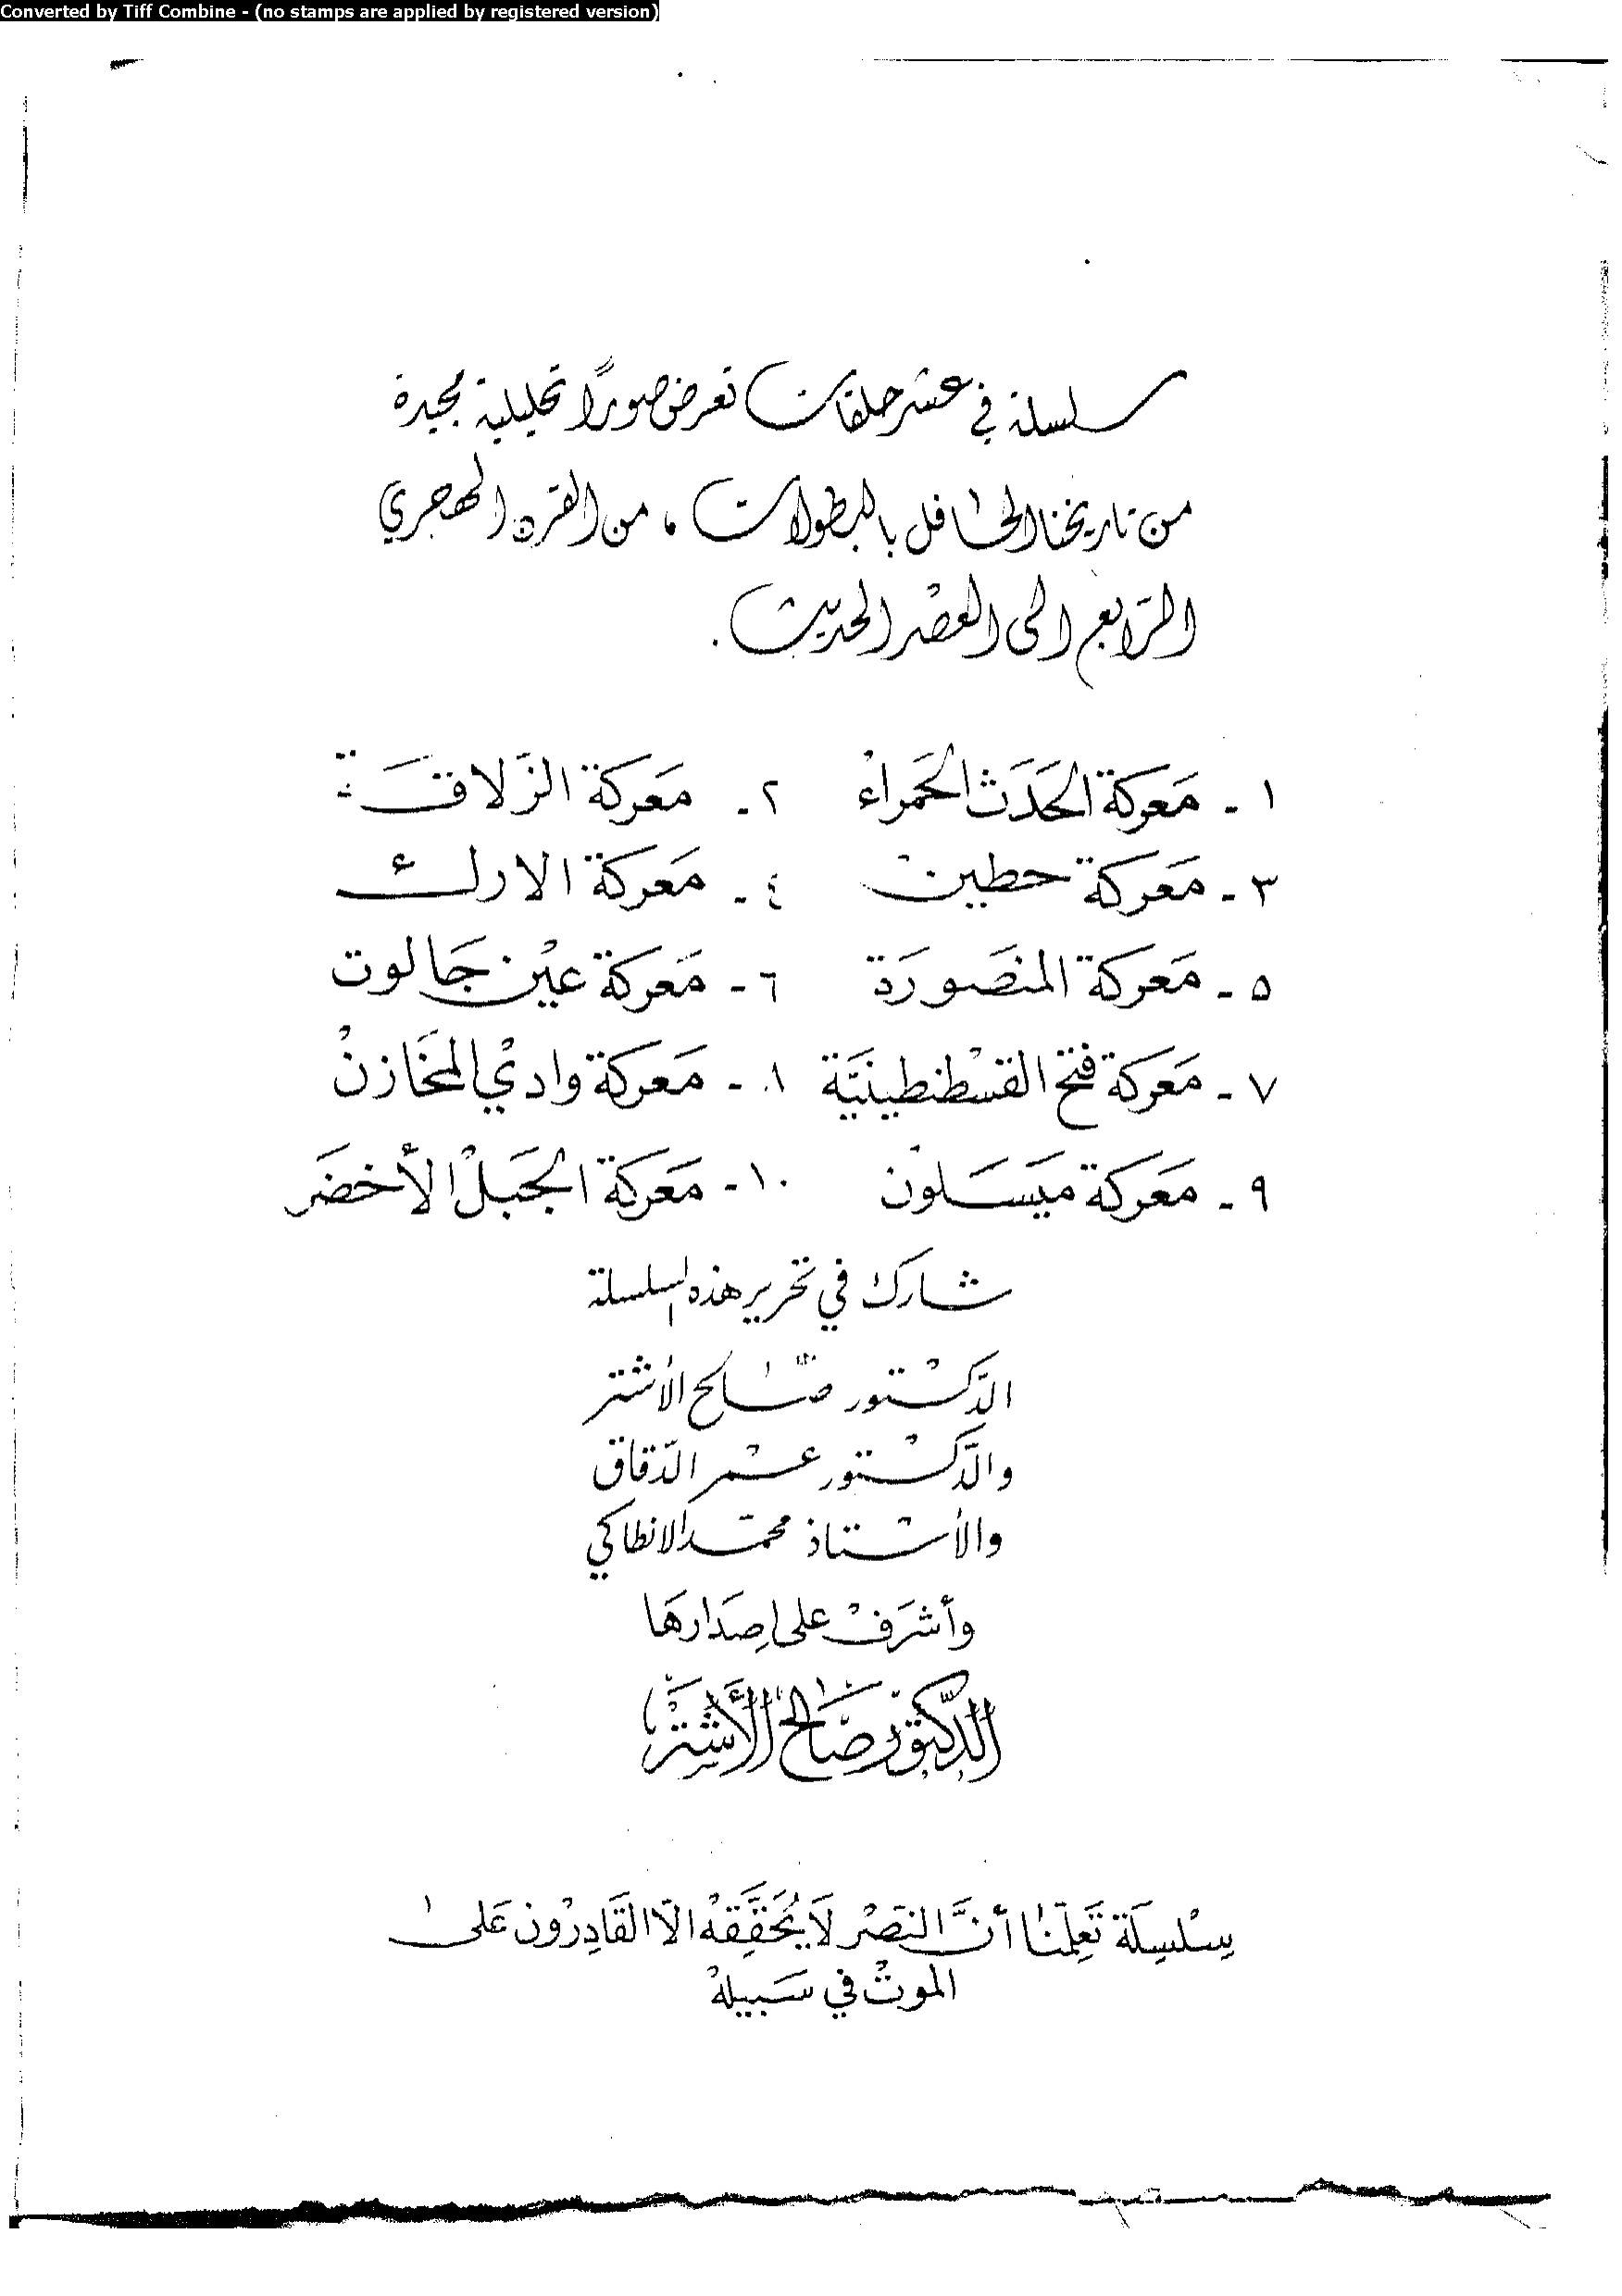 Converted by Tiff Combine - (no stamps are applied by registered version)
سلسلة في عشر حلقات تعرض صورًا تحليلية مجيدة
من تاريخنا الحافل بالبطولات ، من القرن الهجري
الرّابع الى العصْر الحديث .
١ - مَعركة الحَدَث الحَمراءْ ٢ - مَعركة الزَّلاقَة
٣ - مَعركة حطين ٤ - مَعركة الارك
٥ - مَعركة المنصَورَة ٦ - مَعركة عيْن جَالوت
٧ - مَعركة فتح القسْطنطينيَّة ٨ - مَعركة واديْ المخَازنْ
٩ - مَعركة ميَسَلون ١٠ - مَعركة الجَبَلْ الأخضَر
شارك في تحرير هذه السلسلة
الدَّكتور صَالح الأشتر
والدَّكتور عمر الدّقاق
والأستاذ محمّد الانطاكي
وأشرَفْ على اصِدَارهَا
الدّكتور صَالح الأَشْتَر
سِلْسِلَة تَعلِّمنَا أنَّ النصَرْ لَا يُحَقَّقِهْ الاّ القَادِرْون عَلى
الموتْ في سَبيلهْ